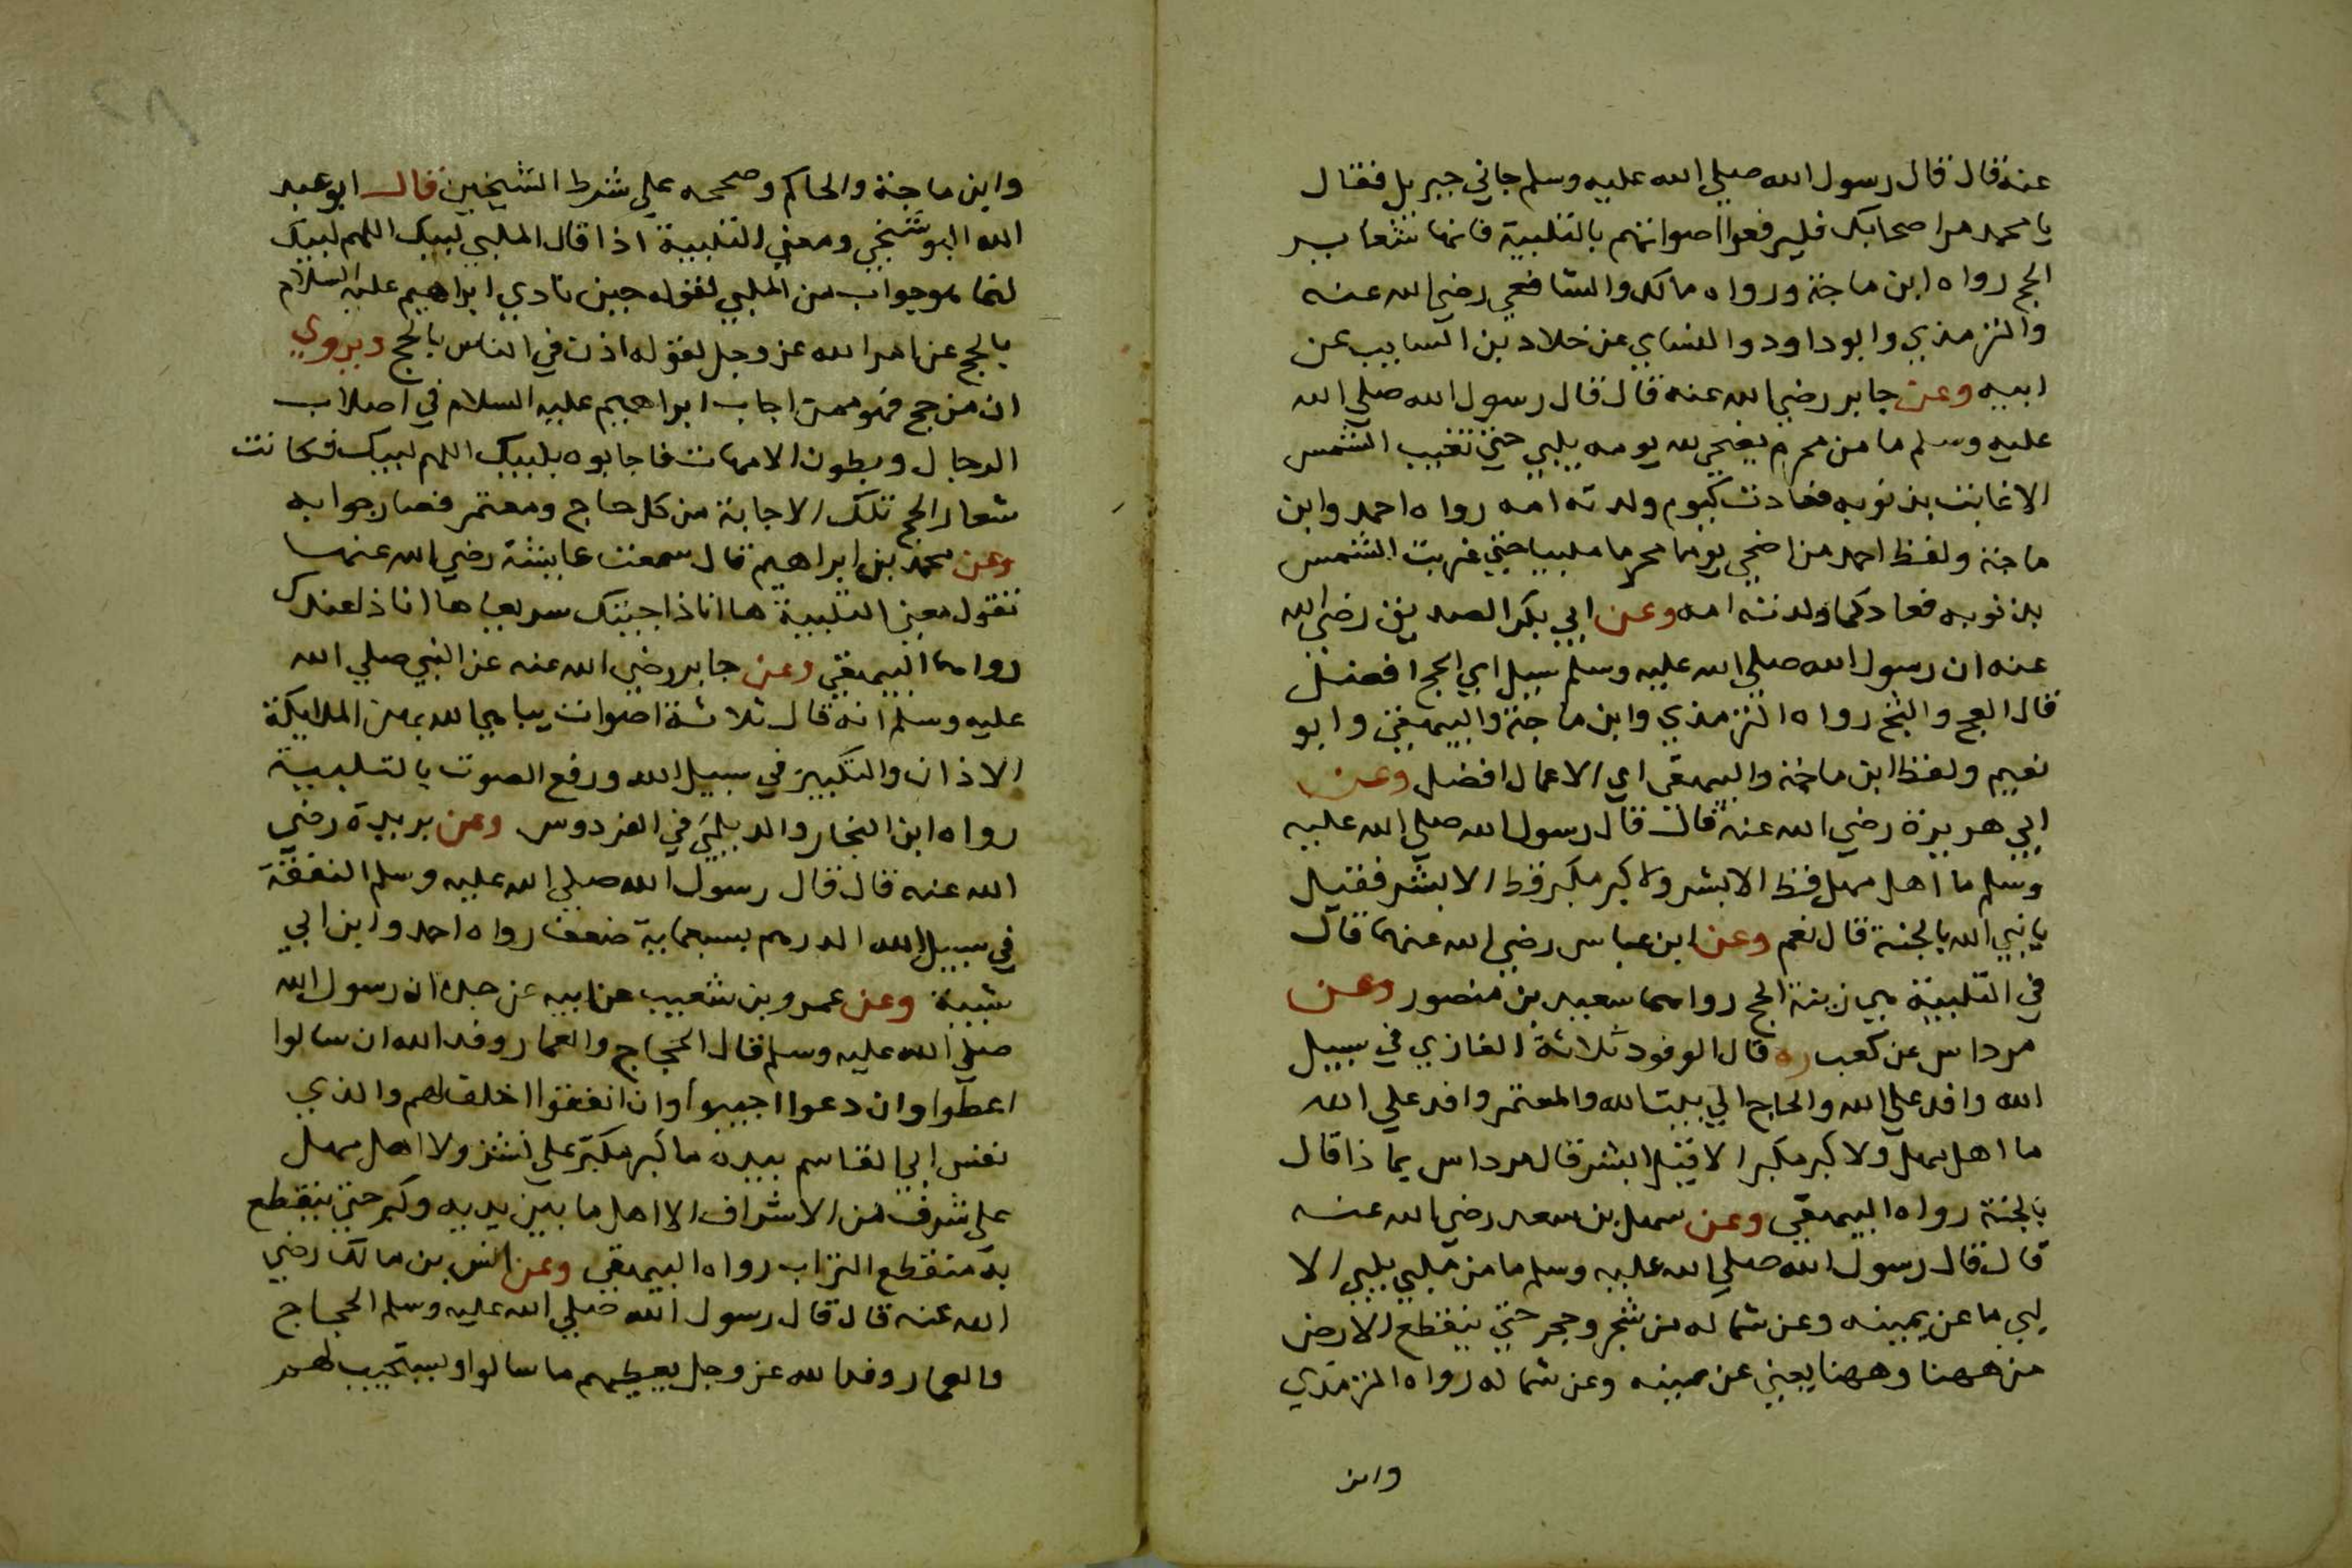 عنه قال قال رسول الله صلي الله عليه وسلم جاني جبريل فقال
يا محمد مر اصحابك فليرفعوا اصواتهم بالتلبية فانها شعاير
الحج رواه ابن ماجة ورواه مالك والشافعي رضي الله عنه
والترمذي وابو داود والنساي عن خلاد بن السايب عن
ابيه وعن جابر رضي الله عنه قال قال رسول الله صلي الله
عليه وسلم ما من محرم يضحي لله يومه يلبي حتي تغيب الشمس
الا غابت بذنوبه فعادت كيوم ولدته امه رواه احمد وابن
ماجة ولفظ احمد من اضحي يوما محرما ملبيا حتي غربت الشمس
بذنوبه فعاد كما ولدته امه وعن ابي بكر الصديق رضي الله
عنه ان رسول الله صلي الله عليه وسلم سيل اي الحج افضل
قال العج والثج رواه الترمذي وابن ماجة والبيهقي وابو
نعيم ولفظ ابن ماجة والبيهقي اي الاعمال افضل وعن
ابي هريرة رضي الله عنه قال قال رسول الله صلي الله عليه
وسلم ما اهل مهل قط الا بشر ولا كبر مكبر قط الا بشر فقيل
يا نبي الله بالجنة قال نعم وعن ابن عباس رضي الله عنهما قال
في التلبية هي زينة الحج رواهما سعيد بن منصور وعن
مرداس عن كعب ره قال الوفود ثلاثة الغازي في سبيل
الله وافد علي الله والحاج الي بيت الله والمعتمر وافد علي الله
ما اهل مهل ولا كبر مكبر الا قيل ابشر قال مرداس بما ذا قال
بالجنة رواه البيهقي وعن سهل بن سعد رضي الله عنه
قال قال رسول الله صلي الله عليه وسلم ما من ملبي يلبي الا
لبي ما عن يمينه وعن شماله من شجر وحجر حتي ينقطع الارض
من ههنا وههنا يعني عن يمينه وعن شماله رواه الترمذي
وابن
وابن ماجة والحاكم وصححه علي شرط الشيخين قال ابو عبد
الله البوشنجي ومعني التلبية اذا قال الملبي لبيك اللهم لبيك
انما هو جواب من الملبي لقوله حين نادي ابراهيم عليه السلام
بالحج عن امر الله عز وجل لقوله اذن في الناس بالحج ويروي
ان من حج فهو ممن اجاب ابراهيم عليه السلام في اصلاب
الرجال وبطون الامهات فاجابوه بلبيك اللهم لبيك فكانت
شعار الحج تلك الاجابة من كل حاج ومعتمر فصار جوابه
وعن محمد بن ابراهيم قال سمعت عايشة رضي الله عنها
تقول معني التلبية ها انا ذا جيتك سريعا ها انا ذا عندك
رواهما البيهقي وعن جابر رضي الله عنه عن النبي صلي الله
عليه وسلم انه قال ثلاثة اصوات يباهي الله بهن الملايكة
الاذان والتكبير في سبيل الله ورفع الصوت بالتلبية
رواه ابن النجار والديلمي في الفردوس وعن بريدة رضي
الله عنه قال قال رسول الله صلي الله عليه وسلم النفقة
في سبيل الله الدرهم بسبعماية ضعف رواه احمد وابن ابي
شيبة وعن عمرو بن شعيب عن ابيه عن جده ان رسول الله
صلي الله عليه وسلم قال الحجاج والعمار وفد الله ان سالوا
اعطوا وان دعوا اجيبوا وان انفقوا اخلف لهم والذي
نفس ابي القاسم بيده ما كبر مكبر علي نشز ولا اهل مهل
علي شرف من الاشراف الا اهل ما بين يديه وكبر حتي ينقطع
به منقطع التراب رواه البيهقي وعن انس بن مالك رضي
الله عنه قال قال رسول الله صلي الله عليه وسلم الحجاج
والعمار وفد الله عز وجل يعطيهم ما سالوا ويستجيب لهم